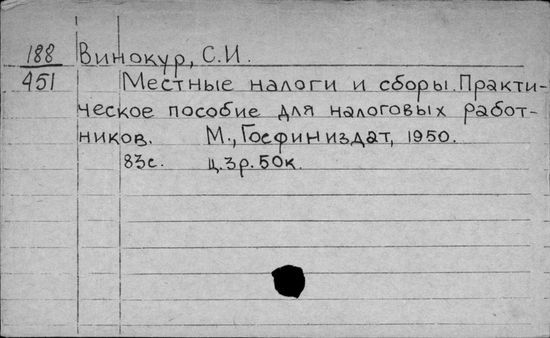 188 Винокур, С.И.
451 Местные налоги и сборы. Практи-
ческое пособие для налоговых работ-
ников. М., Госфиниздат, 1950.
83с. ц.3р.50к.